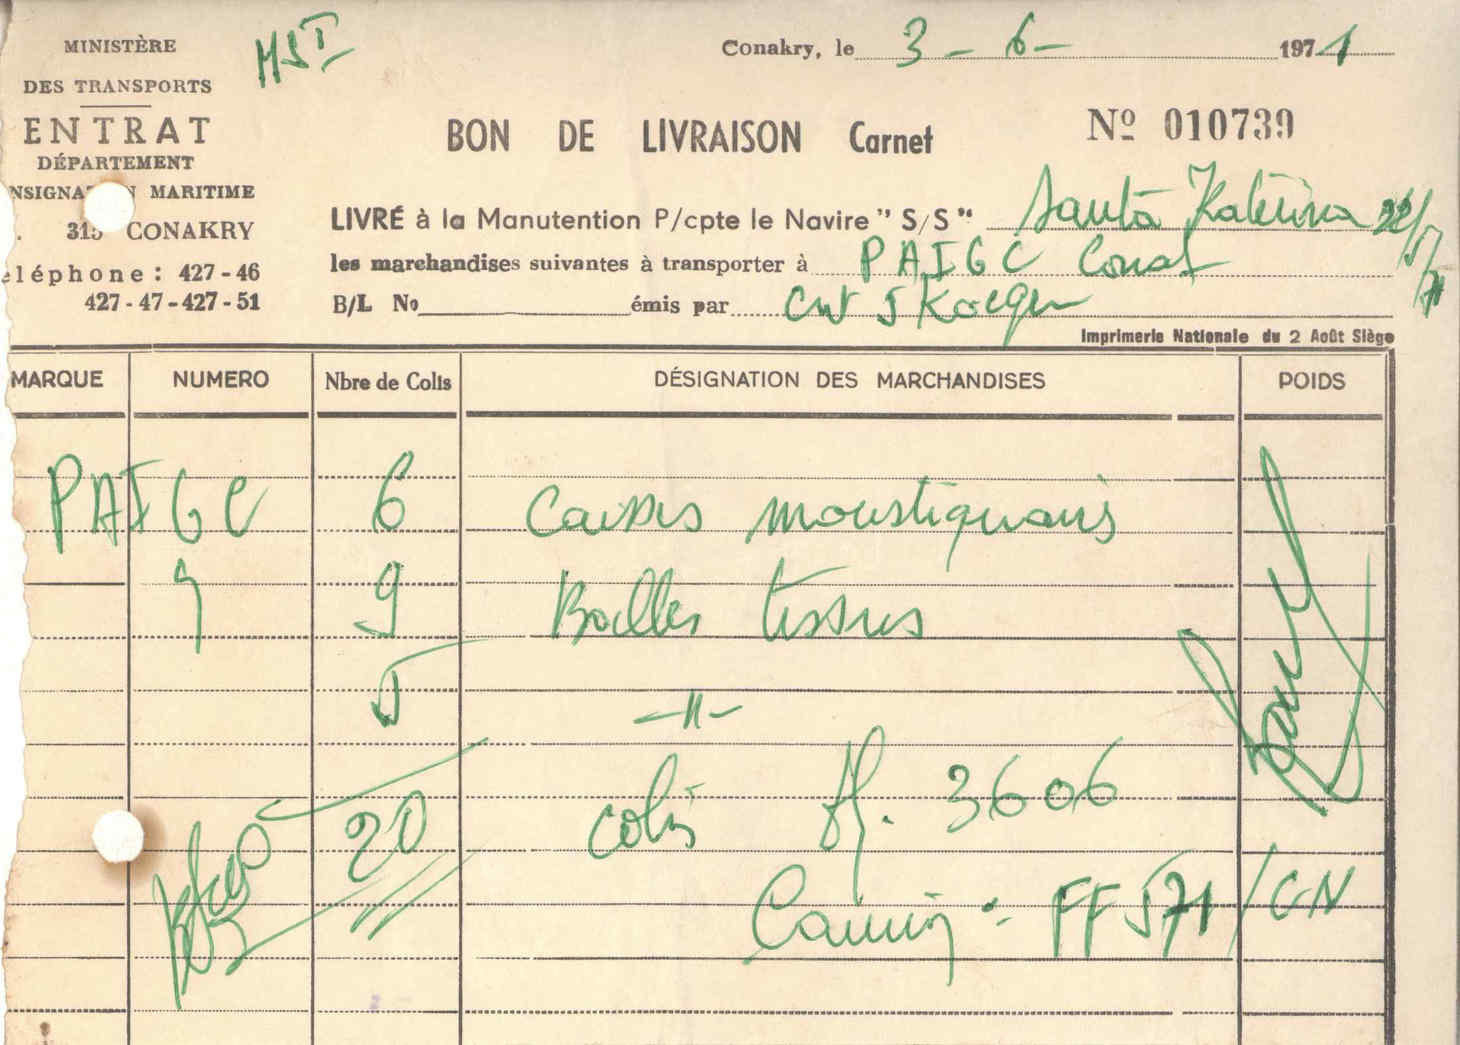 MINISTÈRE
DES TRANSPORTS
ENTRAT
DÉPARTEMENT
NSIGNA N MARITIME
. 315 CONAKRY
éléphone : 427-46
427-47-427-51
MST
Conakry, le 3-6- 1971
BON DE LIVRAISON Carnet
Nº 010739
LIVRÉ à la Manutention P/cpte le Navire "S/S" Santa Katerina 22/5/71
les marchandises suivantes à transporter à PAIGC Conaf
B/L No émis par
Imprimerie Nationale du 2 Août Siège
MARQUE NUMERO Nbre de Colis DÉSIGNATION DES MARCHANDISES POIDS
PAIGC 6 Caisses moustiquaires
9 Balles tissus
5 -11-
20 colis ff. 3606
Camion :- FF 571/GN